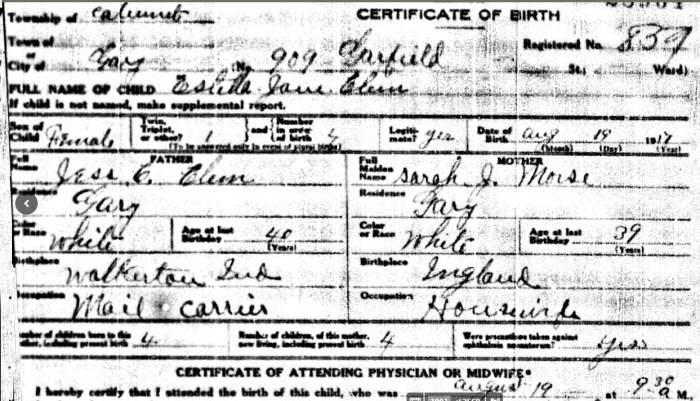 Township of Calumet
CERTIFICATE OF BIRTH
Town of
or
City of Gary No. 909 Garfield St.; Ward)
Registered No. 839
FULL NAME OF CHILD Estella Jane Clem
If child is not named, make supplemental report.
Sex of Child Female
Twin, Triplet, or other? 1 and Number in order of birth 4
(To be answered only in event of plural births)
Legitimate? yes
Date of Birth Aug 19 1917
(Month) (Day) (Year)
FATHER
Full Name Jess C. Clem
Residence Gary
Color or Race White
Age at last Birthday 40
(Years)
Birthplace Walkerton Ind
Occupation Mail carrier
MOTHER
Full Maiden Name Sarah J. Morse
Residence Gary
Color or Race White
Age at last Birthday 39
(Years)
Birthplace England
Occupation Housewife
Number of children born to this mother, including present birth 4
Number of children, of this mother, now living, including present birth 4
Were precautions taken against ophthalmia neonatorum? yes
CERTIFICATE OF ATTENDING PHYSICIAN OR MIDWIFE*
I hereby certify that I attended the birth of this child, who was August 19 at 9 30 a M.